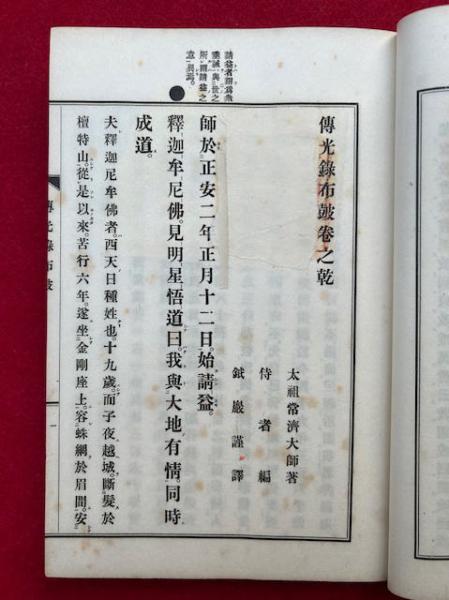 請益者謂爲衆
垂誡與世之
所謂請益之
意異焉。
傳光錄布皷卷之乾
太祖常濟大師著
侍者編
鉞巖謹譯
師於正安二年正月十二日。始請益。
釋迦牟尼佛。見明星悟道曰。我與大地有情。同時
成道。
夫釋迦牟尼佛者。西天日種姓也。十九歲。而子夜越城。斷髮於
檀特山。從是以來。苦行六年。遂坐金剛座上。容蛛網於眉間。安
傳光錄布皷
一